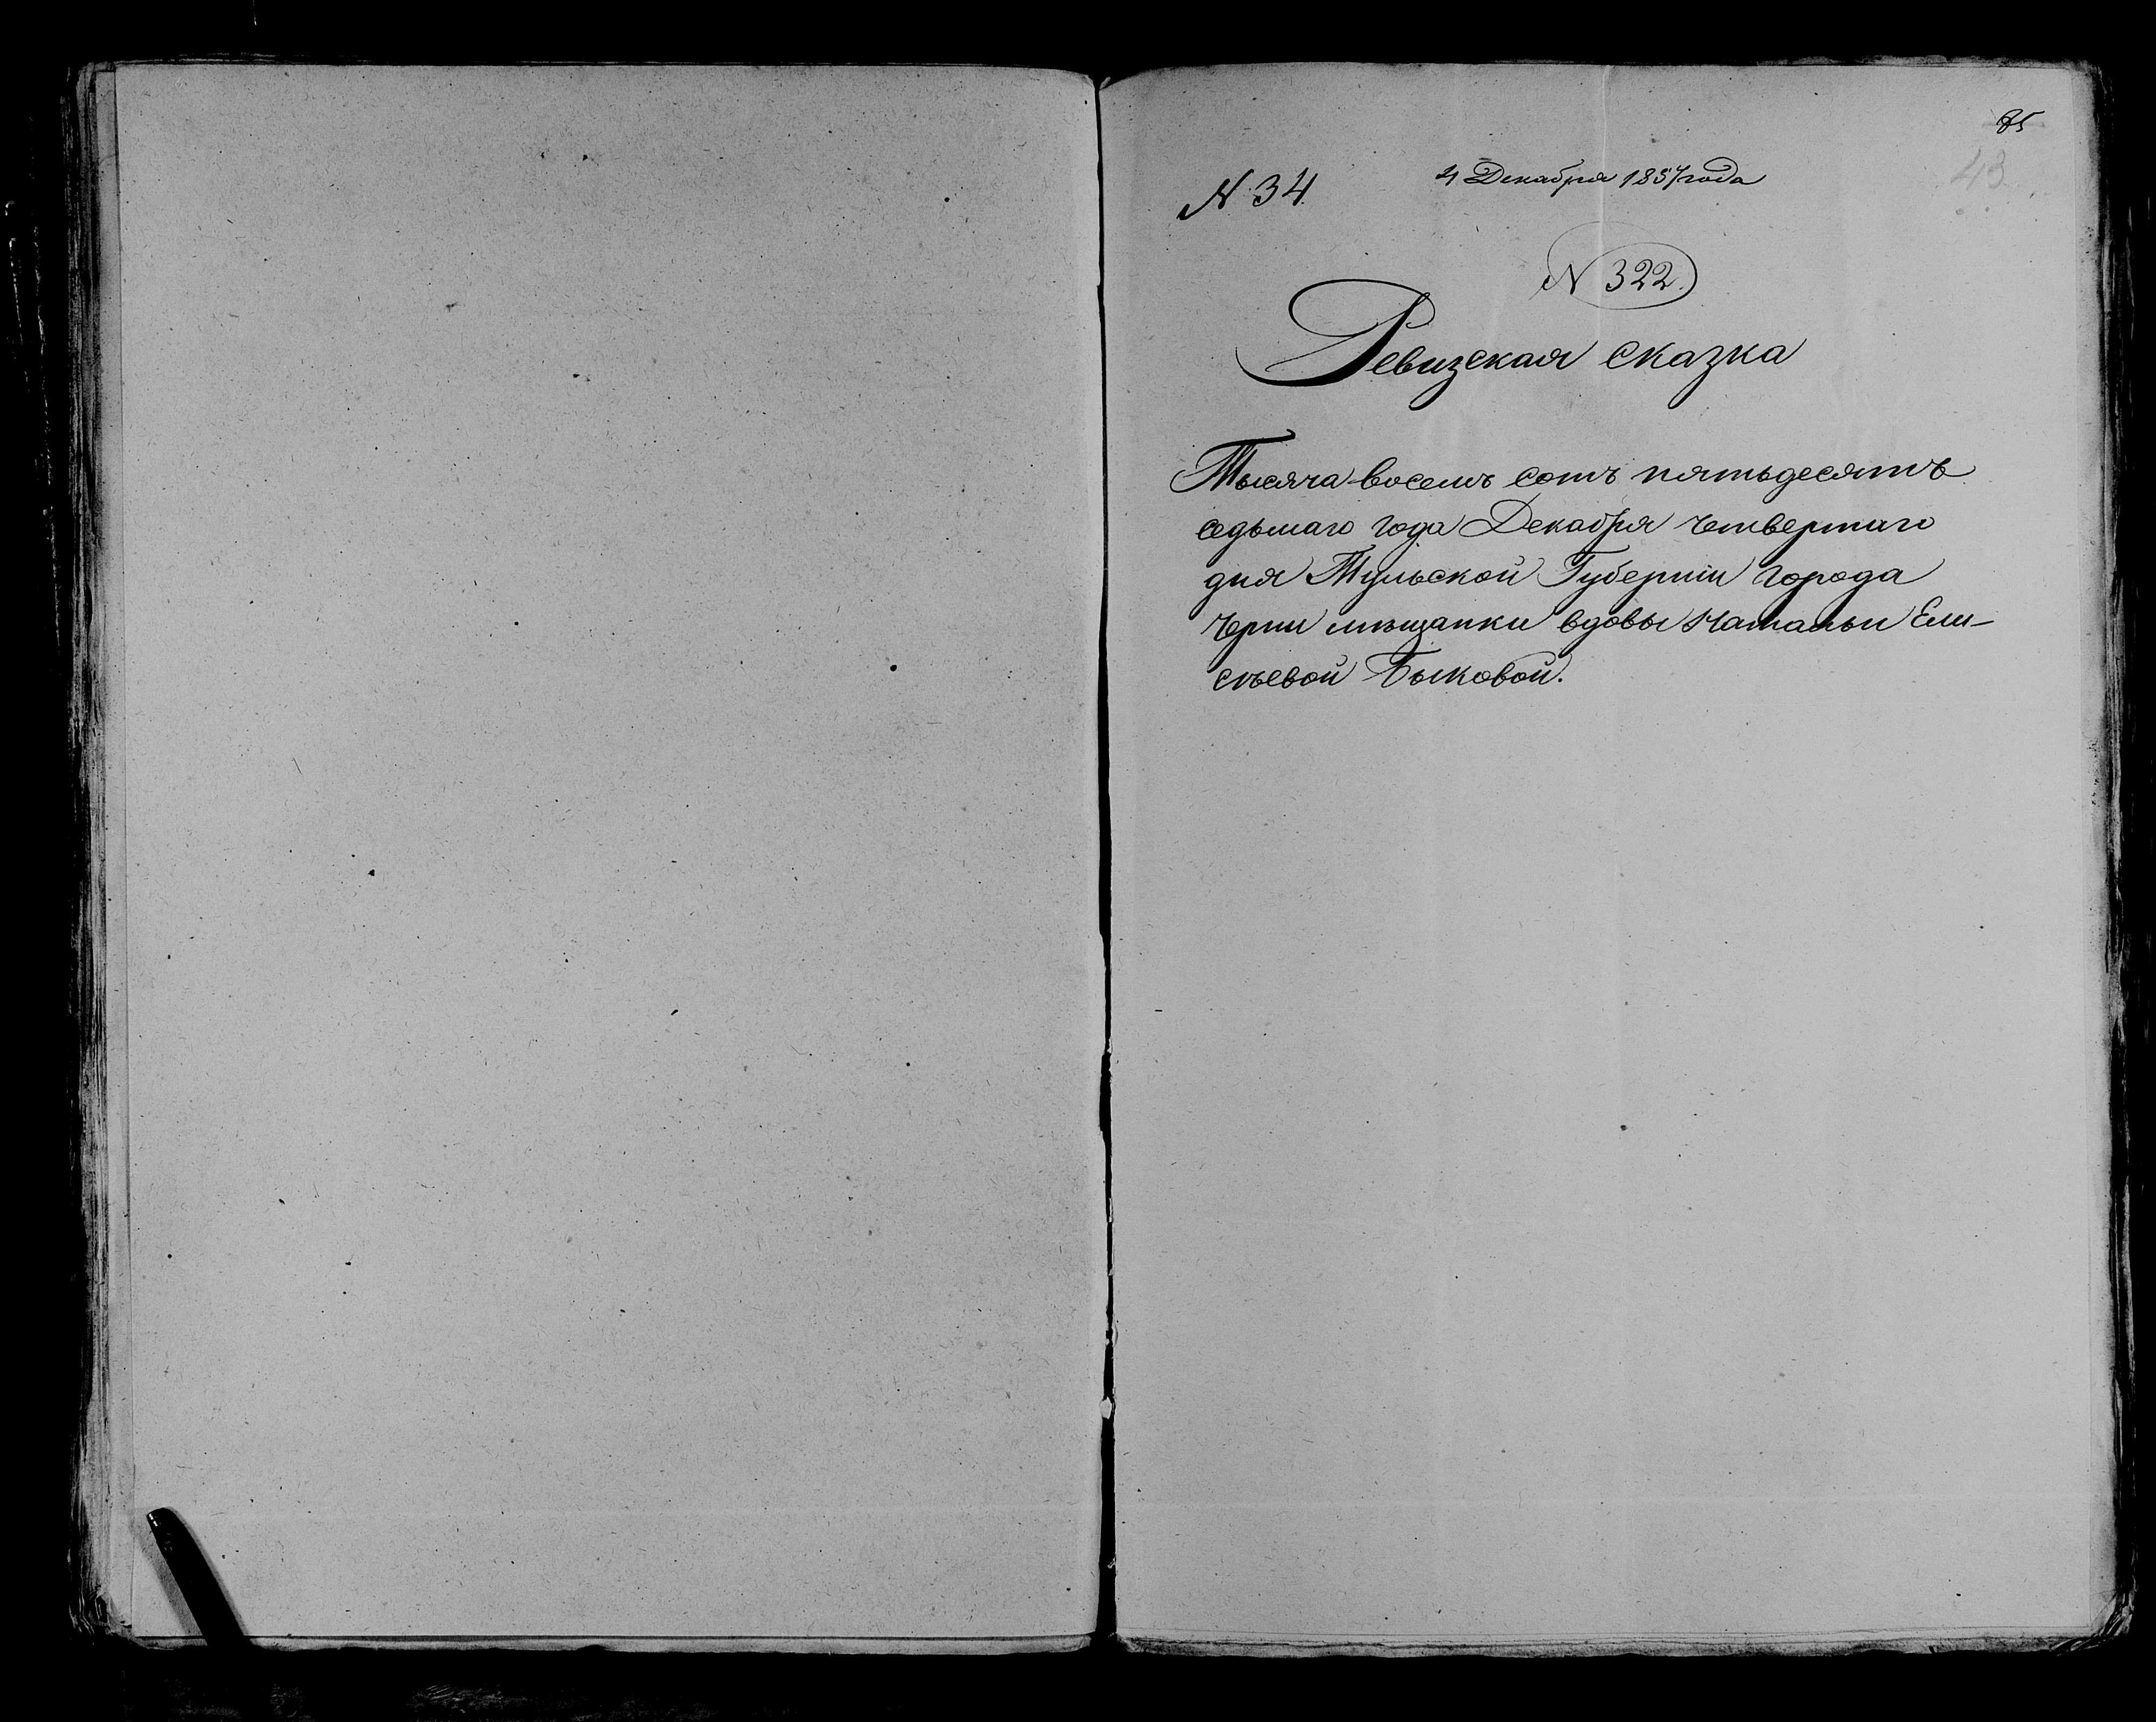 85
43
N. 34.
4 Декабря 1857 года
N 322.
Ревизская сказка
Тысяча восемь сотъ пятьдесятъ
седьмаго года Декабря четвертаго
дня Тульской Губерніи города
Черни мѣщанки вдовы Натальи Ели-
сѣевой Быковой.